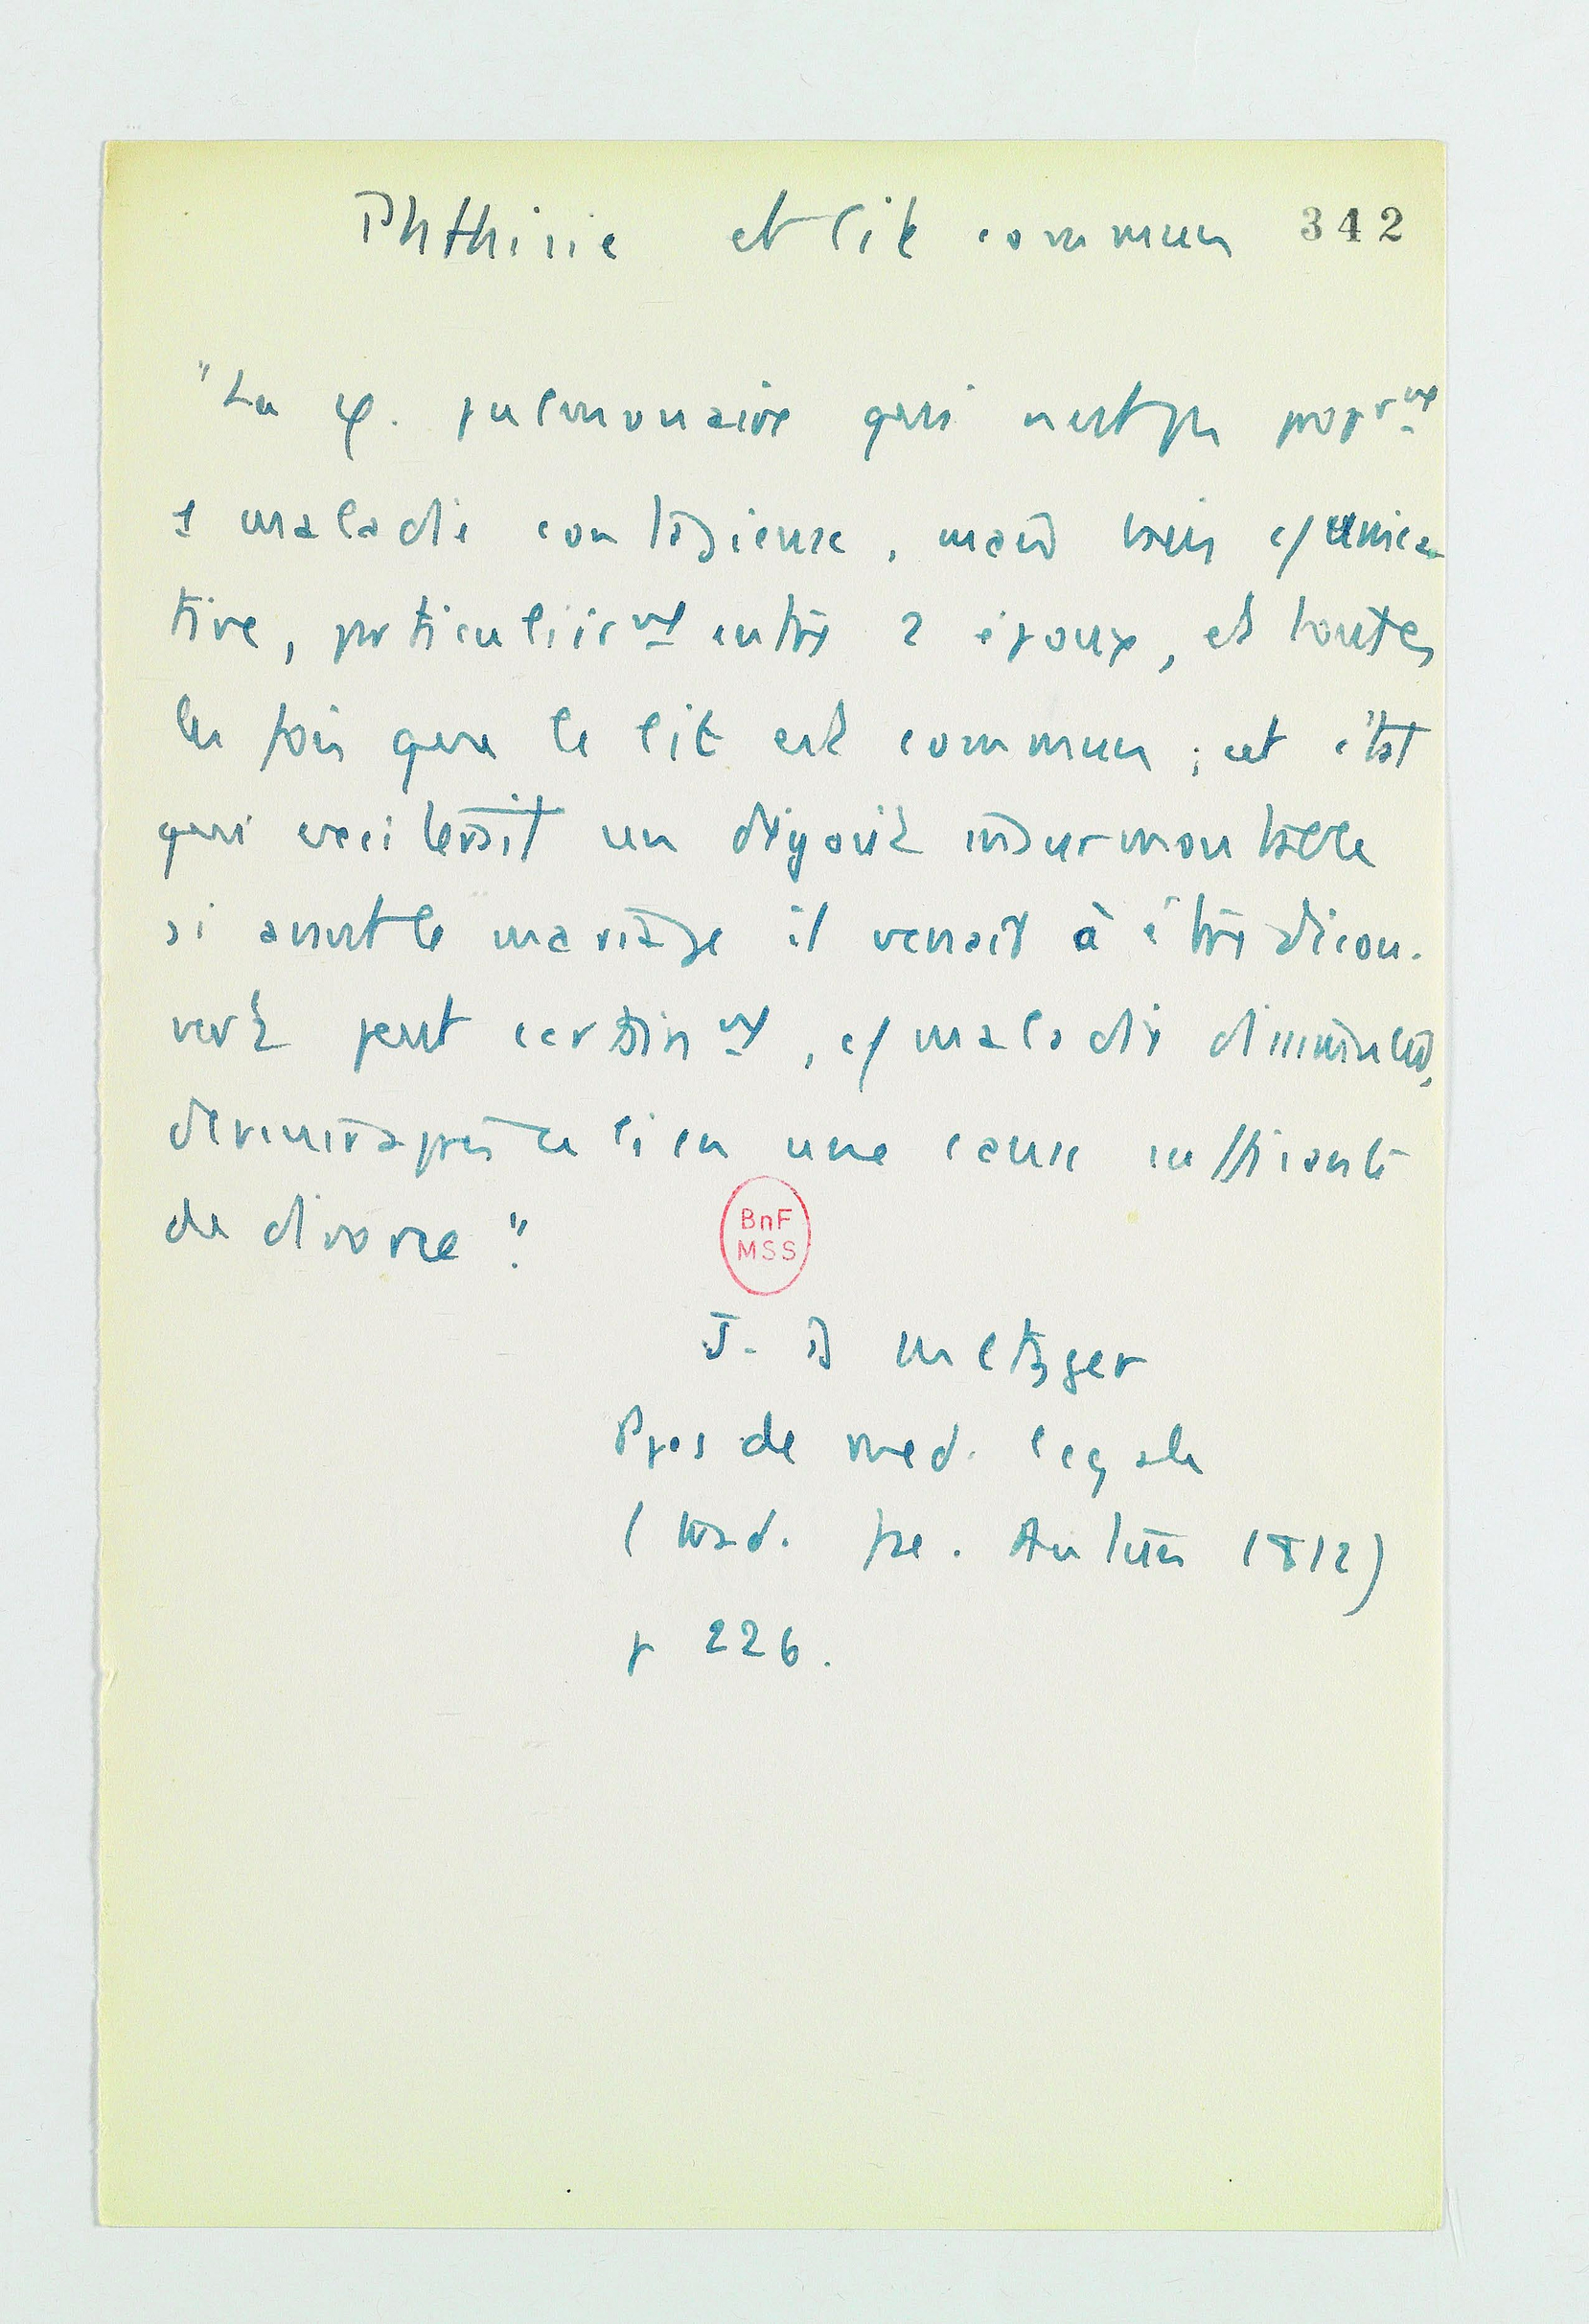 Phthisie et lit commun 342
"La φ. pulmonaire qui n'est pas propr^mt
1 maladie contagieuse, mais bien c/unica
tive, particulièr^mt entre 2 époux, et toutes
les fois que le lit est commun ; cet état
qui exciterait un dégoût insurmontable
si avant le mariage il venait à être décou-
vert peut certain^mt, c/ maladie dissimulée,
devenir après ce lien une cause suffisante
de divorce".
BnF
MSS
J. D Metzger
Ppes de med. legale
(trad. fse. 1812)
p 226.